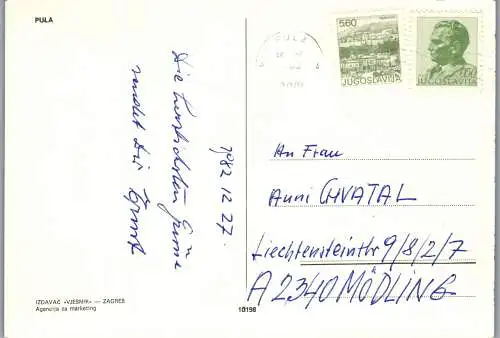 PULA
1982 12 27.
Die herzlichsten Grüße
sendet dir Ernst
IZDAVAČ »VJESNIK« — ZAGREB
Agencija za marketing
10198
PULA
5.60
JUGOSLAVIJA
JUGOSLAVIJA
An Frau
Anni CHVATAL
Liechtensteinstr 9/8/2/7
A 2340 MÖDLING